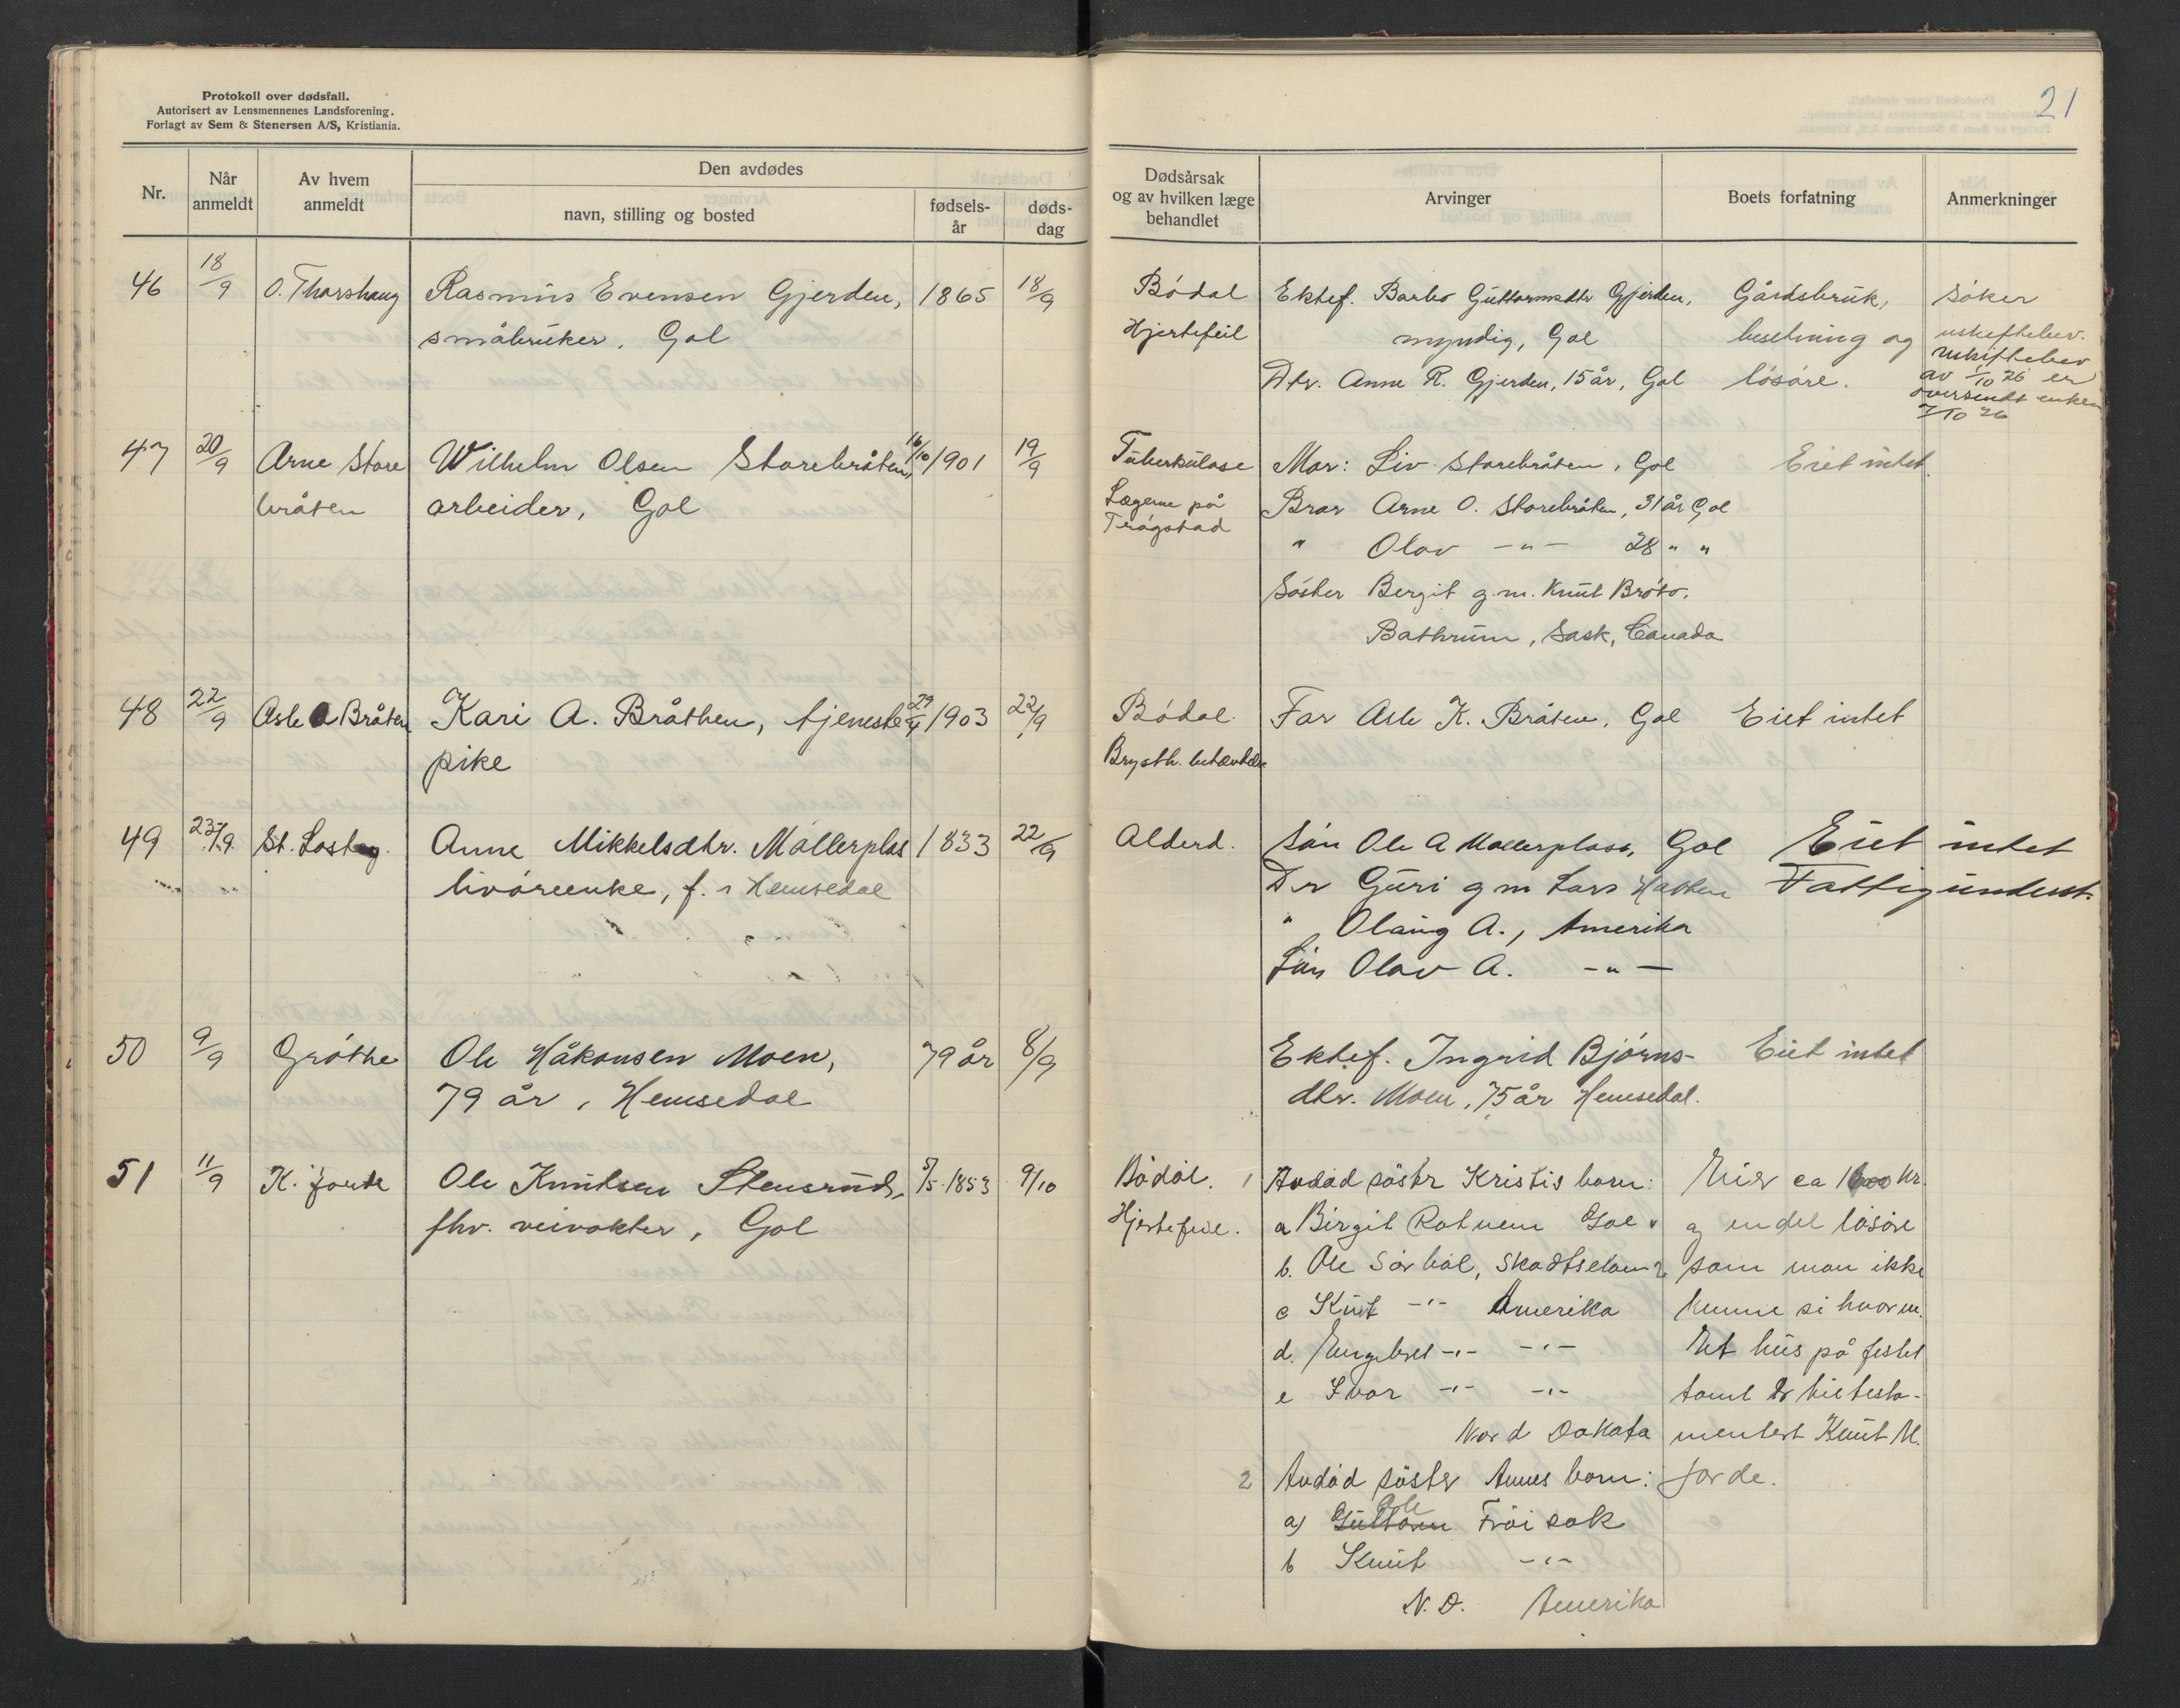 Protokoll over dødsfall.
Autorisert av Lensmennenes Landsforening.
Forlagt av Sem & Stenersen A/S, Kristiania.
21
Nr.
Når anmeldt
Av hvem anmeldt
Den avdødes
navn, stilling og bosted
fødsels-år
døds-dag
Dødsårsak og av hvilken læge behandlet
Arvinger
Boets forfatning
Anmerkninger
46 18/9 O. Thorshaug Rasmus Evensen Gjerden, 1865 18/9 Bödal Ektef. Barbo Guttormsdtr Gjerden, Gårdsbruk, söker
småbruker, Gol Hjertefeil myndig, Gol besetning og uskiftebev.
Dtr. Anne R. Gjerden, 15 år, Gol lösöre. uskiftebev
av 1/10 26 er
oversendt enken
7/10 26
47 20/9 Arne Store Wilhelm Olsen Storebråten, 16/10 1901 19/9 Tuberkulose Mor: Liv Storebråten, Gol Eiet intet
bråten arbeider, Gol Lægerne på Bror Arne O. Storebråten, 31 år Gol
Trögstad
" Olav -"- 28 " "
Söster Bergit g.m. Knut Bröto.
Bathrum, Sask, Canada
48 22/9 Asle A Bråten Kari A. Bråthen, tjeneste 29/4 1903 22/9 Bödal. Far Asle K. Bråten, Gol Eiet intet
pike Brysth. betændelse
49 23/9 St. Anne Mikkelsdtr. Möllerplas 1833 22/9 Alderd. Sön Ole A Möllerplass, Gol Eiet intet
livöreenke, f. i Hemsedal Dtr Guri g m Lars Hatten Fattigunderst.
" Olaug A., Amerika
Sön Olav A. -"-
50 9/9 Gröthe Ole Håkonsen Moen, 79 år 8/9 Ektef. Ingrid Björns- Eiet intet
79 år, Hemsedal dtr. Moen, 75 år Hemsedal.
51 11/9 K. Jorde Ole Knutsen Stensrud, 5/5 1853 9/10 Bödal. 1 Avdöd söstr Kristis born: Eier ca kr.
fhv. veivokter, Gol Hjertefeil. a Birgit Rotnem Gol og en del lösöre
b. Ole Sörböl, som man ikke
c Knut -"- Amerika kunne si hvor m.
d. Engebret -"- -"- Et hus på festet
e Ivar -"- -"- tomt er bietesta-
Nord Dakota mentert Knut M.
2 Avdöd söster Annes born: Jorde.
a) Guttorm Ole Fröisok
b Knut -"-
N. D. Amerika